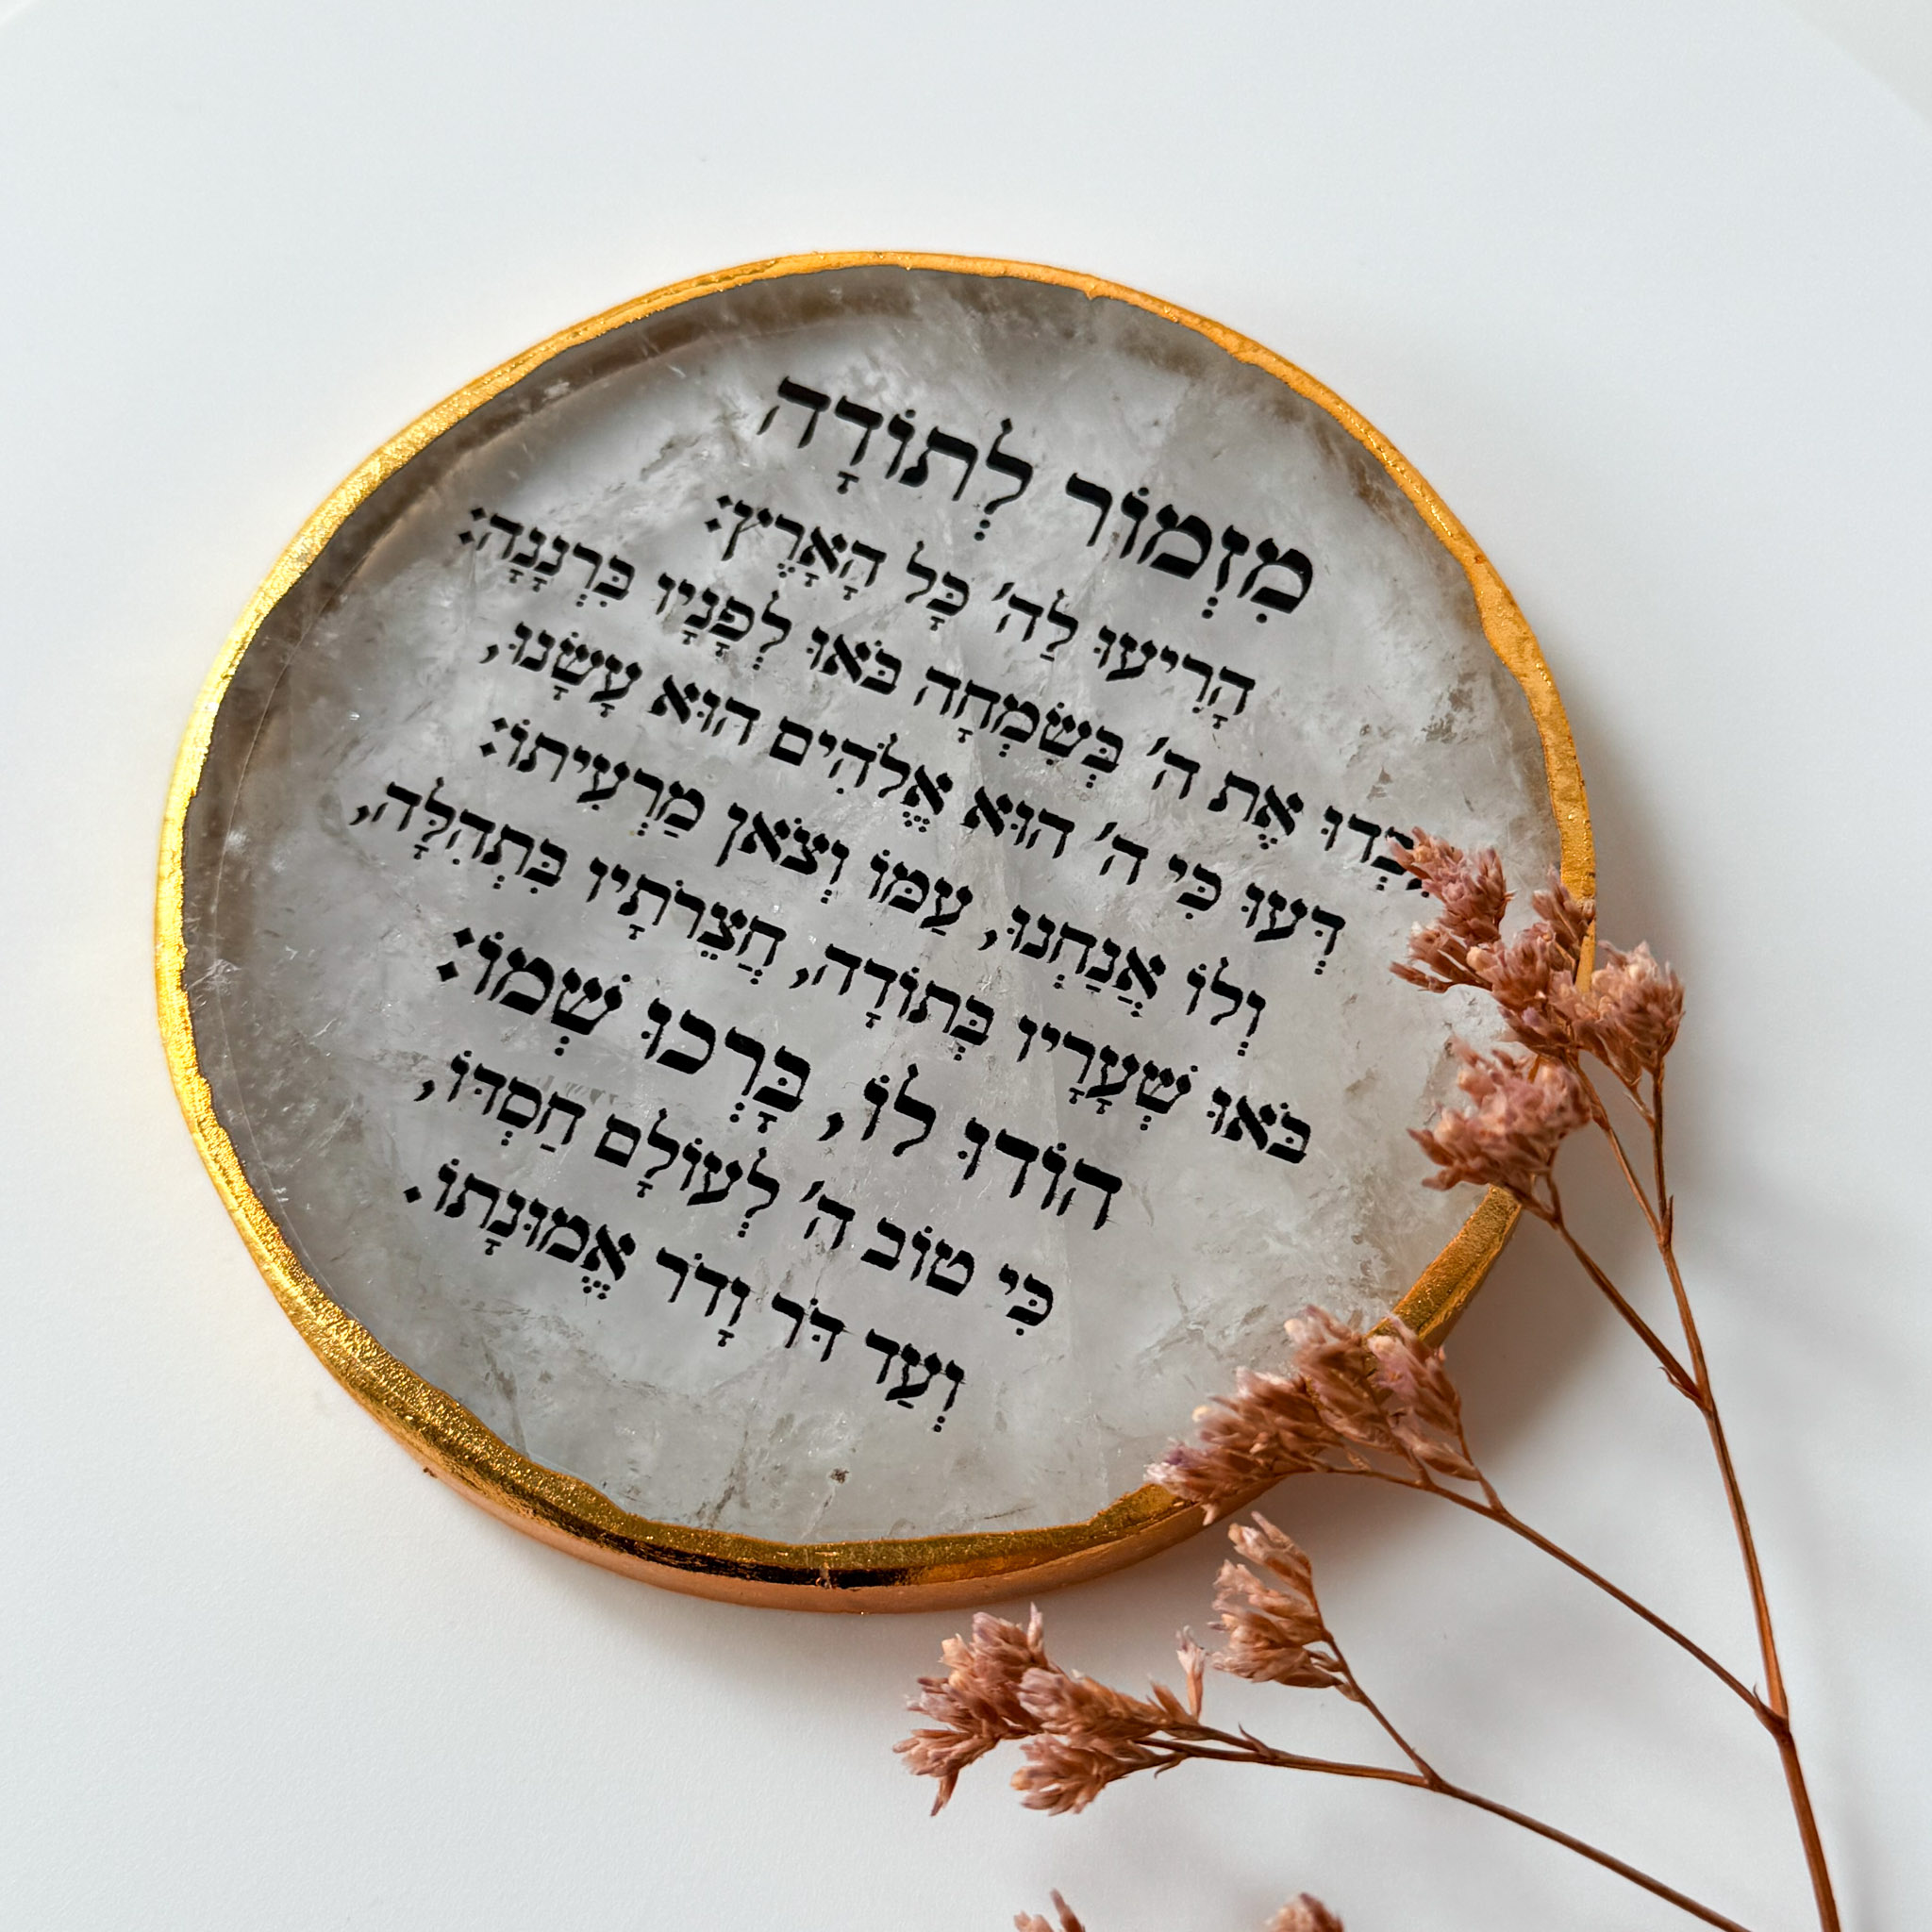 מִזְמוֹר לְתוֹדָה
הָרִיעוּ לַה' כָּל הָאָרֶץ:
עִבְדוּ אֶת ה' בְּשִׂמְחָה בֹּאוּ לְפָנָיו בִּרְנָנָה:
דְּעוּ כִּי ה' הוּא אֱלֹהִים הוּא עָשָׂנוּ,
וְלוֹ אֲנַחְנוּ, עַמּוֹ וְצֹאן מַרְעִיתוֹ:
בֹּאוּ שְׁעָרָיו בְּתוֹדָה, חֲצֵרֹתָיו בִּתְהִלָּה,
הוֹדוּ לוֹ, בָּרְכוּ שְׁמוֹ:
כִּי טוֹב ה' לְעוֹלָם חַסְדּוֹ,
וְעַד דֹּר וָדֹר אֱמוּנָתוֹ.